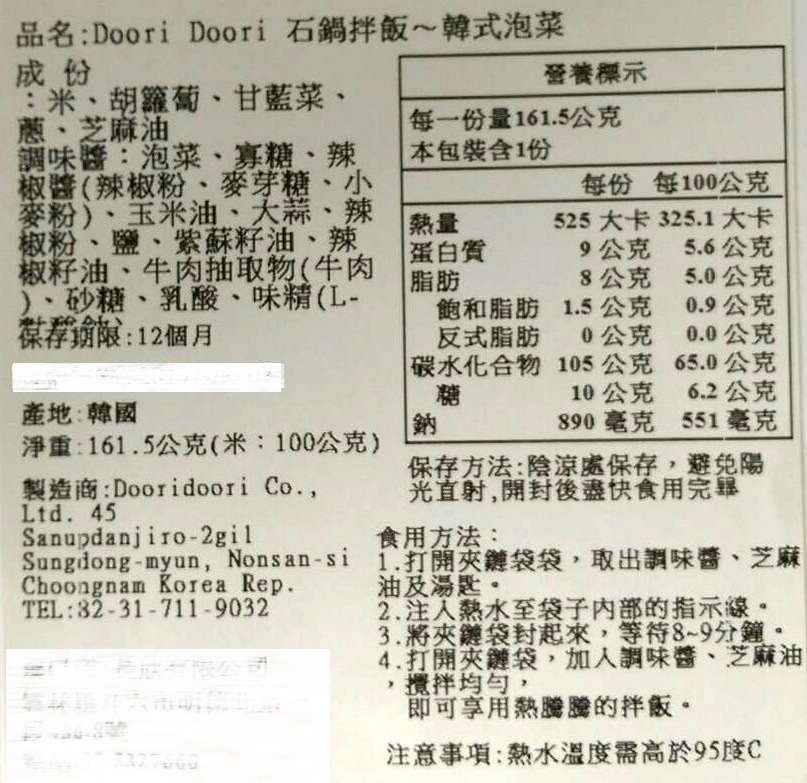 品名:Doori Doori 石鍋拌飯～韓式泡菜
成 份
：米、胡蘿蔔、甘藍菜、
蔥、芝麻油
調味醬：泡菜、寡糖、辣
椒醬(辣椒粉、麥芽糖、小
麥粉)、玉米油、大蒜、辣
椒粉、鹽、紫蘇籽油、辣
椒籽油、牛肉抽取物(牛肉
)、砂糖、乳酸、味精(L-
保存期限:12個月
產地:韓國
淨重:161.5公克(米：100公克)
製造商:Dooridoori Co.,
Ltd. 45
Sanupdanjiro-2gil
Sungdong-myun, Nonsan-si
Choongnam Korea Rep.
TEL:82-31-711-9032
營養標示
每一份量161.5公克
本包裝含1份
每份 每100公克
熱量 525 大卡 325.1 大卡
蛋白質 9 公克 5.6 公克
脂肪 8 公克 5.0 公克
飽和脂肪 1.5 公克 0.9 公克
反式脂肪 0 公克 0.0 公克
碳水化合物 105 公克 65.0 公克
糖 10 公克 6.2 公克
鈉 890 毫克 551 毫克
保存方法:陰涼處保存，避免陽
光直射,開封後盡快食用完畢
食用方法：
1.打開夾鏈袋袋，取出調味醬、芝麻
油及湯匙。
2.注入熱水至袋子內部的指示線。
3.將夾鏈袋封起來，等待8~9分鐘。
4.打開夾鏈袋，加入調味醬、芝麻油
，攪拌均勻，
即可享用熱騰騰的拌飯。
注意事項:熱水溫度需高於95度C